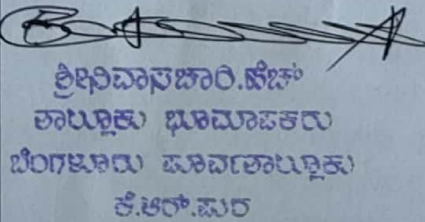 ಶ್ರೀನಿವಾಸಚಾರಿ.ಹೆಚ್
ತಾಲ್ಲೂಕು ಭೂಮಾಪಕರು
ಬೆಂಗಳೂರು ಪೂರ್ವತಾಲ್ಲೂಕು
ಕೆ.ಆರ್.ಪುರ